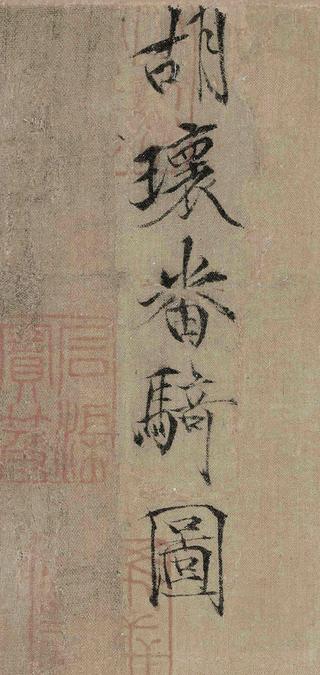 胡瓌番騎圖